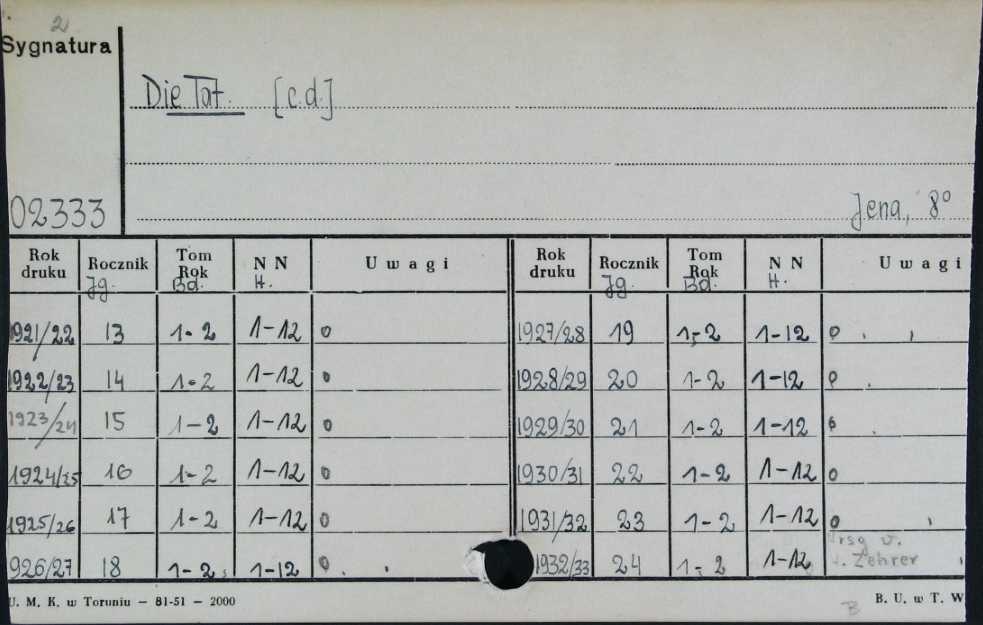 2
Sygnatura
Die Tat. [c.d.]
02333
Jena, 8°
Rok druku Rocznik Jg. Tom Rok Bd. NN H. Uwagi Rok druku Rocznik Jg. Tom Rok Bd. NN H. Uwagi
1921/22 13 1-2 1-12 o 1927/28 19 1-2 1-12 o
1922/23 14 1-2 1-12 o 1928/29 20 1-2 1-12 o
1923/24 15 1-2 1-12 o 1929/30 21 1-2 1-12 o
1924/25 16 1-2 1-12 o 1930/31 22 1-2 1-12 o
1925/26 17 1-2 1-12 o 1931/32 23 1-2 1-12 o
926/27 18 1-2 1-12 o 1932/33 24 1-2 1-12 rsg v. Zehrer
U. M. K. w Toruniu — 81-51 — 2000
B
B. U. w T. W